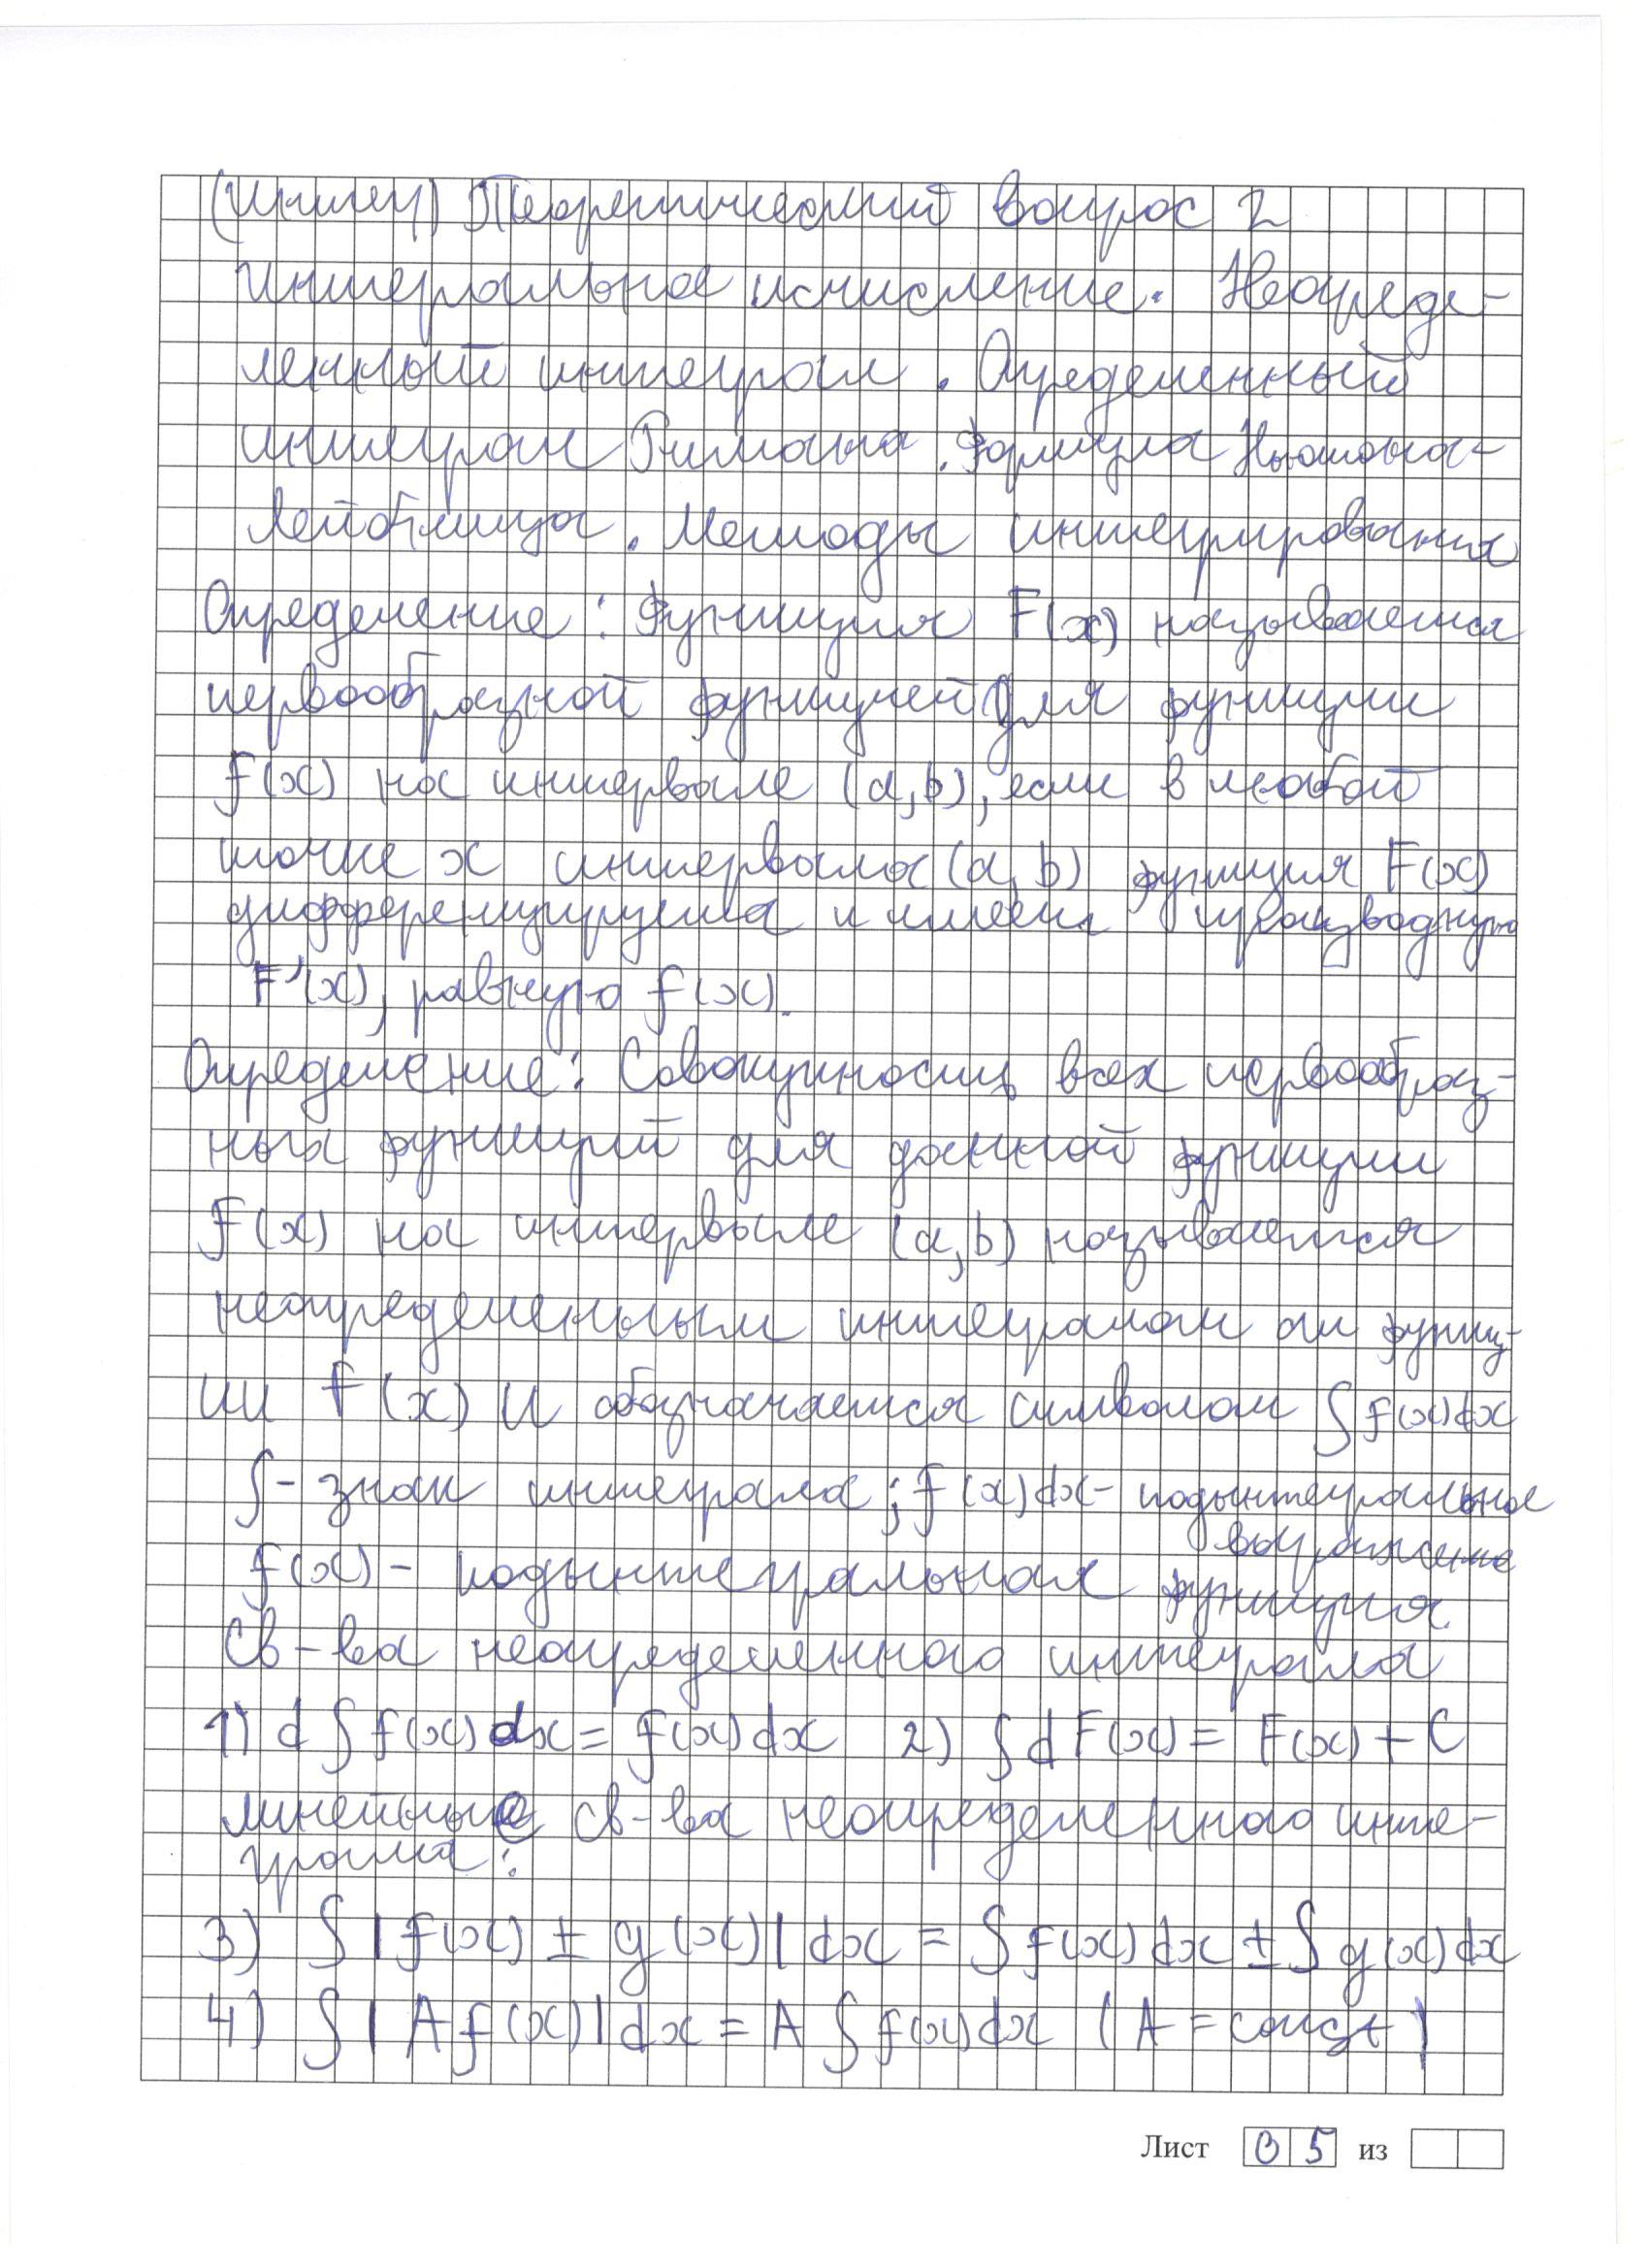 Теоретический вопрос 2
Интегральное исчисление. Неопреде-
ленный интеграл. Определенный
интеграл Римана. Формула Ньютона-
Лейбница. Методы интегрирования
Определение: Функция F(x) называется
первообразной функцией для функции
f(x) на интервале (a,b), если в любой
точке x интервала (a,b) функция F(x)
дифференцируема и имеет производную
F'(x), равную f(x).
Определение: Совокупность всех первообраз-
ных функций для данной функции
f(x) на интервале (a,b) называется
неопределенным интегралом от функц-
ии f(x) и обозначается символом ∫f(x)dx
∫ - знак интеграла; f(x)dx - подынтегральное
выражение
f(x) - подынтегральная функция.
Св-ва неопределенного интеграла
1) d∫f(x)dx = f(x)dx 2) ∫dF(x) = F(x) + C
линейные св-ва неопределенного инте-
грала:
3) ∫|f(x) ± g(x)|dx = ∫f(x)dx ± ∫g(x)dx
4) ∫|Af(x)|dx = A∫f(x)dx (A = const)
Лист 05 из